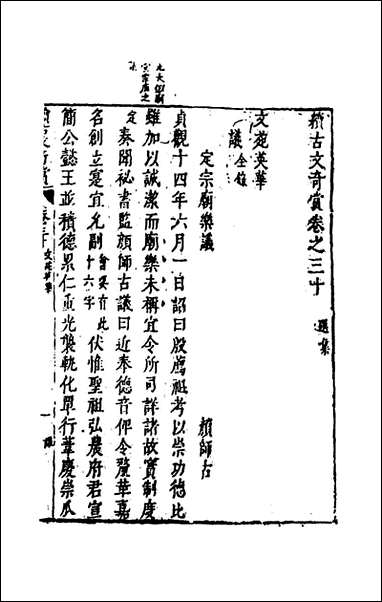 續古文奇賞卷之三十 選集
文苑英華
議 全錄
定宗廟樂議 顏師古
貞觀十四年六月一日詔曰殷薦祖考以崇功德比
雖加以誠潔而廟樂未稱宜令所司詳諸故實制度
定奏聞祕書監顏師古議曰近奉德音俾令發華嘉
名創立寔宜允副 會要有此十六字 伏惟聖祖弘農府君宣
簡公懿王並積德累仁重光襲軌化單行葦慶崇瓜